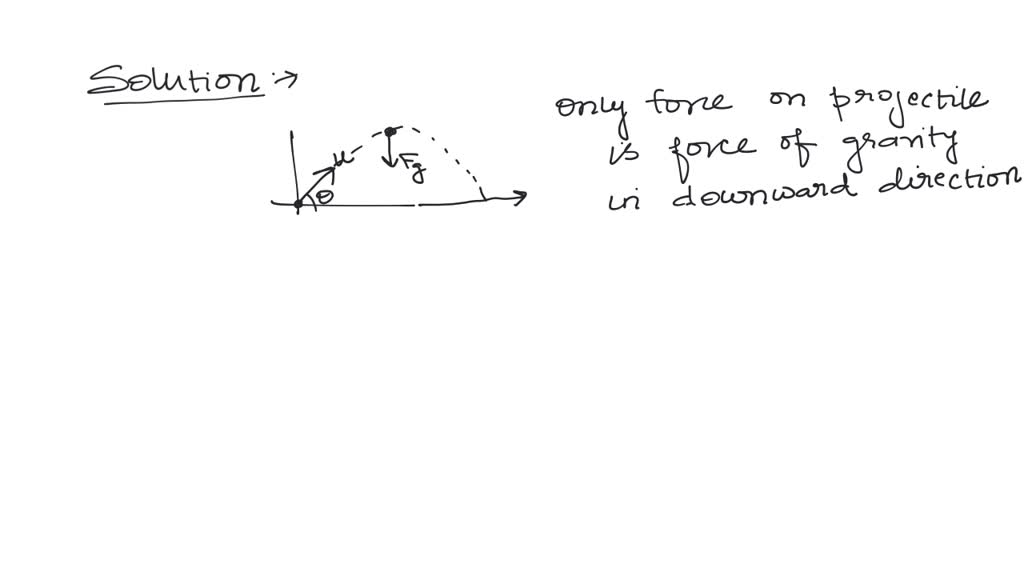 Solution :→
only force on projectile
is force of gravity
in downward direction
u
Fg
θ